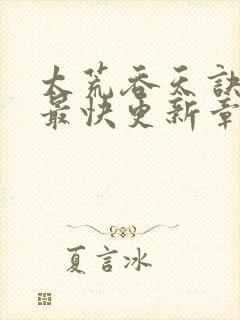 大荒吞天訣
最快更新章
夏言冰